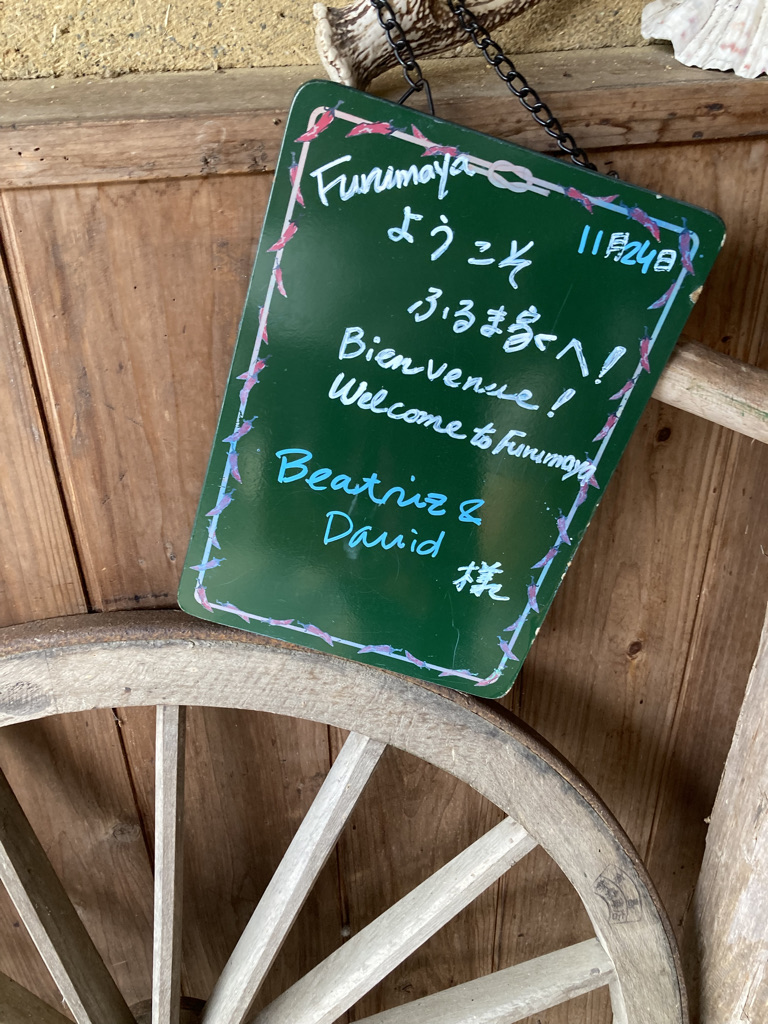 Furumaya
11月24日
ようこそ
ふるま家へ!
Bienvenue!
Welcome to Furumaya
Beatriz &
David
様